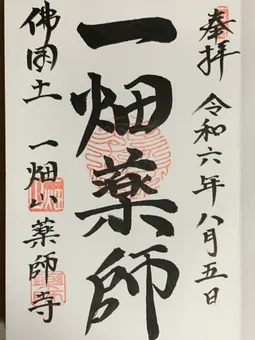 奉拝 令和六年八月五日
一畑薬師
佛国土 一畑山 薬師寺